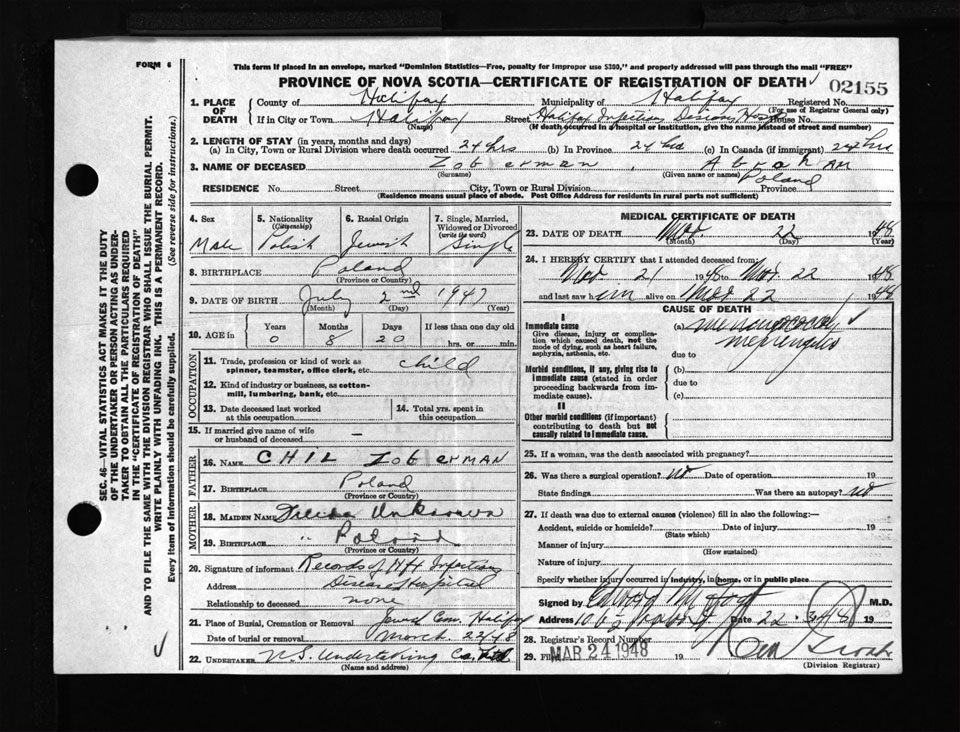 FORM 6
This form if placed in an envelope, marked "Dominion Statistics—Free, penalty for improper use $300," and properly addressed will pass through the mail "FREE"
PROVINCE OF NOVA SCOTIA—CERTIFICATE OF REGISTRATION OF DEATH
02155
1. PLACE OF DEATH
County of Halifax Municipality of Halifax Registered No.
(For use of Registrar General only)
If in City or Town Halifax Street Halifax Infectious Diseases Hosp House No.
(Name) (If death occurred in a hospital or institution, give the name instead of street and number)
2. LENGTH OF STAY (in years, months and days)
(a) In City, Town or Rural Division where death occurred 24 hrs (b) In Province 24 hrs (c) In Canada (if immigrant) 24 hrs
3. NAME OF DECEASED Zoberman, Abraham
(Surname) (Given name or names)
RESIDENCE No. Street City, Town or Rural Division Province Poland
(Residence means usual place of abode. Post Office Address for residents in rural parts not sufficient)
4. Sex Male
5. Nationality (Citizenship) Polish
6. Racial Origin Jewish
7. Single, Married, Widowed or Divorced (write the word) Single
8. BIRTHPLACE Poland
(Province or Country)
9. DATE OF BIRTH July 2nd 1947
(Month) (Day) (Year)
10. AGE in Years Months Days If less than one day old
0 8 20 hrs. or min.
OCCUPATION
11. Trade, profession or kind of work as spinner, teamster, office clerk, etc. Child
12. Kind of industry or business, as cotton-mill, lumbering, bank, etc.
13. Date deceased last worked at this occupation
14. Total yrs. spent in this occupation
15. If married give name of wife or husband of deceased —
FATHER
16. NAME CHIL Zoberman
17. BIRTHPLACE Poland
(Province or Country)
MOTHER
18. MAIDEN NAME Unknown
19. BIRTHPLACE " Poland
(Province or Country)
20. Signature of informant Records of Hfx Infectious
Address Diseases Hospital
Relationship to deceased none
21. Place of Burial, Cremation or Removal Jewish Cem. Halifax
Date of burial or removal March 22/48
22. UNDERTAKER N.S. Undertaking Co. Ltd
(Name and address)
MEDICAL CERTIFICATE OF DEATH
23. DATE OF DEATH Mar. 22 1948
(Month) (Day) (Year)
24. I HEREBY CERTIFY that I attended deceased from:
Mar 21 1948 to Mar. 22 1948
and last saw him alive on Mar 22 1948
CAUSE OF DEATH
I
Immediate cause
Give disease, injury or complication which caused death, not the mode of dying, such as heart failure, asphyxia, asthenia, etc.
(a) meningococcal meningitis
due to
Morbid conditions, if any, giving rise to immediate cause (stated in order proceeding backwards from immediate cause).
(b)
due to
(c)
II
Other morbid conditions (if important) contributing to death but not causally related to immediate cause.
25. If a woman, was the death associated with pregnancy?
26. Was there a surgical operation? no Date of operation 19
State findings Was there an autopsy? no
27. If death was due to external causes (violence) fill in also the following:—
Accident, suicide or homicide? Date of injury 19
(State which)
Manner of injury
(How sustained)
Nature of injury
Specify whether injury occurred in industry, in home, or in public place
Signed by M.D.
Address Date 22 19
28. Registrar's Record Number
29. Filed MAR 24 1948 19
(Division Registrar)
SEC. 46—VITAL STATISTICS ACT MAKES IT THE DUTY
OF THE UNDERTAKER OR PERSON ACTING AS UNDER-
TAKER TO OBTAIN ALL THE PARTICULARS REQUIRED
IN THE "CERTIFICATE OF REGISTRATION OF DEATH"
AND TO FILE THE SAME WITH THE DIVISION REGISTRAR WHO SHALL ISSUE THE BURIAL PERMIT.
WRITE PLAINLY WITH UNFADING INK. THIS IS A PERMANENT RECORD.
Every item of information should be carefully supplied. (See reverse side for instructions.)